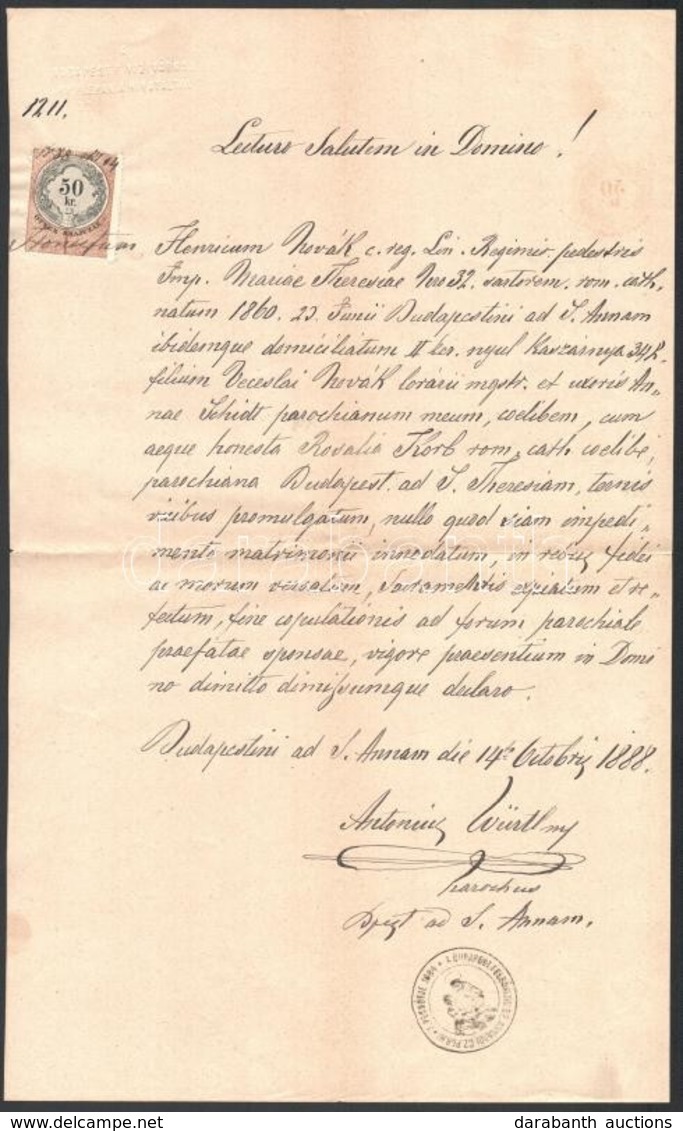 1211.
Lecturo Salutem in Domino!
50
kr.
Honestum Henricum Novák c. reg. Lin. Regimis pedestris
Imp. Mariae Theresiae Nro 32. sartorem. rom. cath.
natum 1860. 23. Junii Budapestini ad S. Annam
ibidemque domiciliatum II ker. nyul Kaszárnya
filium Veceslai Novák lorarii mgstr. et uxoris An„
nae Schidt parochianum meum, coelibem, cum
aeque honesta Rosalia Korb rom. cath. coelibe,
parochiana Budapest. ad S. Theresiam, ternis
vicibus promulgatum, nullo quod sciam impedi„
mento matrimonii innodatum, in rebus fidei
ac morum versatum, Sacramentis expiatum et re„
fectum, fine copulationis ad forum parochiale
praefatae sponsae, vigore praesentium in Domi
no dimitto dimissumque declaro.
Budapestini ad S. Annam die 14te Octobris 1888.
Antonius Würtl mp
parochus
Bpest ad S. Annam.
darabanth
www.darabanth-auctions.com